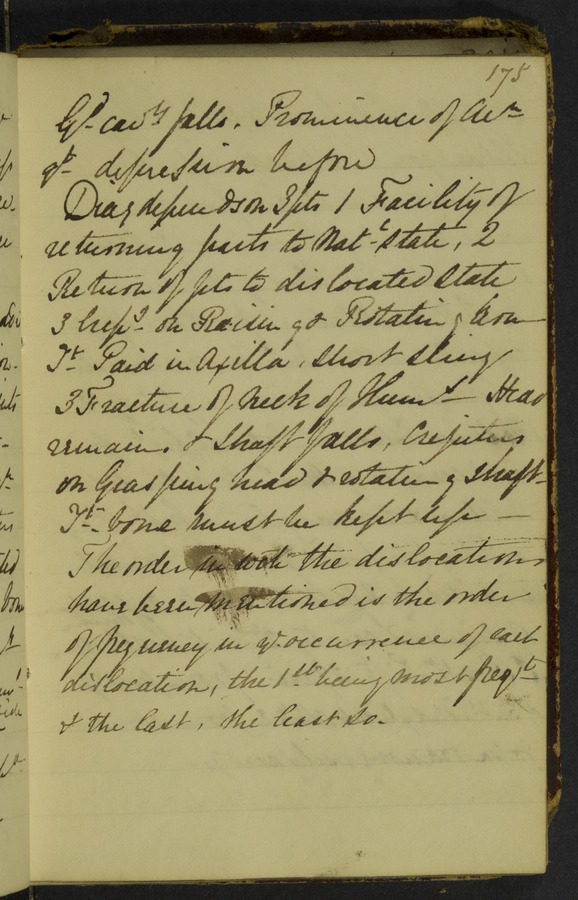 175
Gd cavty falls. Prominence of Acrn
gt depression before
Diag depends on 3 pts 1 Facility of
returning parts to Natl State, 2
Return of pts to dislocated state
3 Crepts on Raising & Rotating from
Tt Pad in Axilla, Short Sling
3 Fracture of neck of Hums Head
remains & Shaft falls, Crepitus
on Grasping head & rotating shaft
Tt bone must be kept up —
The order in wch the dislocations
have been mentioned is the order
of frequency in ye occurrence of each
dislocation, the 1st being most freqt
& the last, the least so.